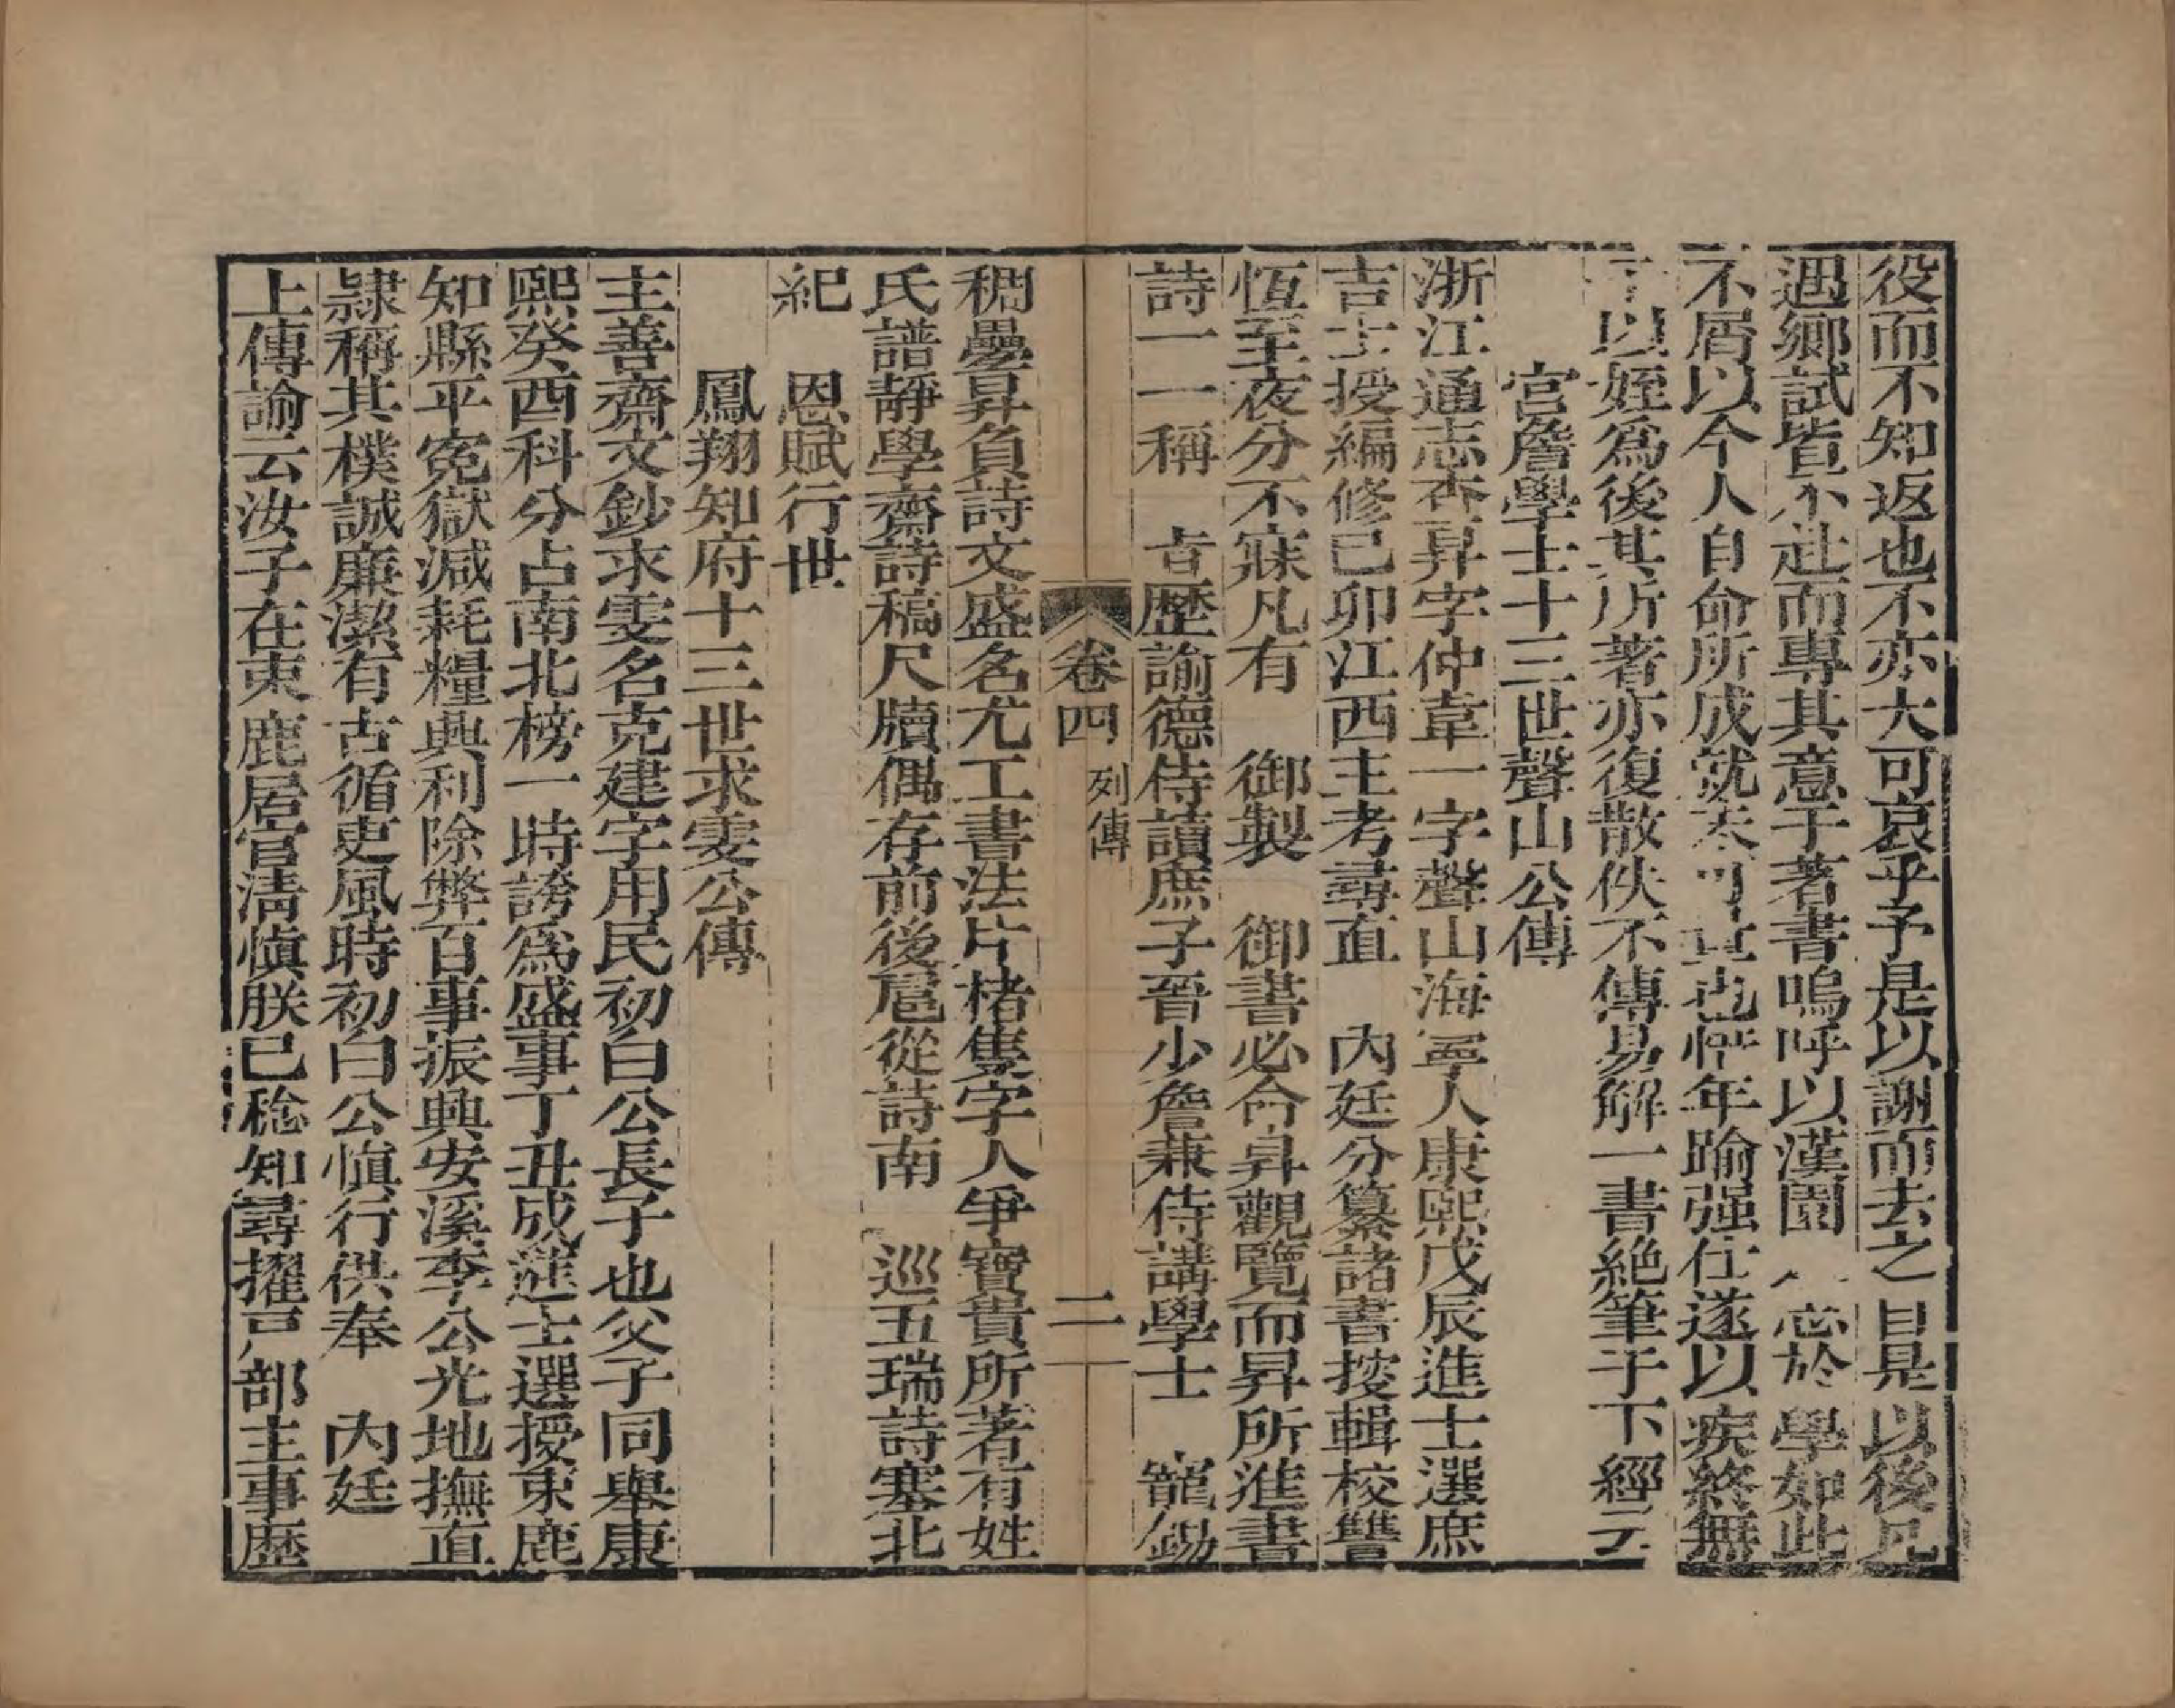 役而不知返也不亦大可哀乎予是以謝而去之自是以後凡
遇鄉試皆不赴而專其意于著書嗚呼以漢園 心於學如此
不屑以今人自命所成就 可 也惜年踰强仕遂以疾終無
子以姪爲後其所著亦復散佚不傳易解一書絶筆于下經
宮詹學士十三世聲山公傳
浙江通志查昇字仲韋一字聲山海寧人康熙戊辰進士選庶
吉士授編修己卯江西主考尋直 內廷分纂諸書按輯校讐
恆至夜分不寐凡有 御製 御書必命昇觀覽而昇所進書
詩一一稱 旨歷諭德侍讀庶子晉少詹兼侍講學士 寵錫
稠疊昇負詩文盛名尤工書法片楮隻字人爭寶貴所著有姓
氏譜靜學齋詩稿尺牘偶存前後扈從詩南 巡五瑞詩塞北
紀 恩賦行世
鳳翔知府十三世求雯公傳
主善齋文鈔求雯名克建字用民初白公長子也父子同舉康
熙癸酉科分占南北榜一時誇爲盛事丁丑成進士選授束鹿
知縣平寃獄減耗糧興利除弊百事振興安溪李公光地撫直
隷稱其樸誠廉潔有古循吏風時初白公愼行供奉 內廷
上傳諭云汝子在束鹿居官淸愼朕已稔知尋擢戶部主事歷
卷四 列傳 二